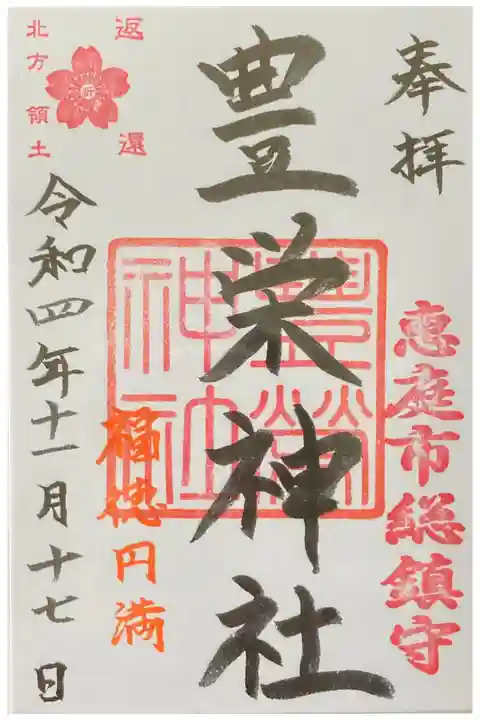 奉拝
恵庭市総鎮守
豊栄神社
豊榮神社
福徳円満
令和四年十一月十七日
返還
北方領土